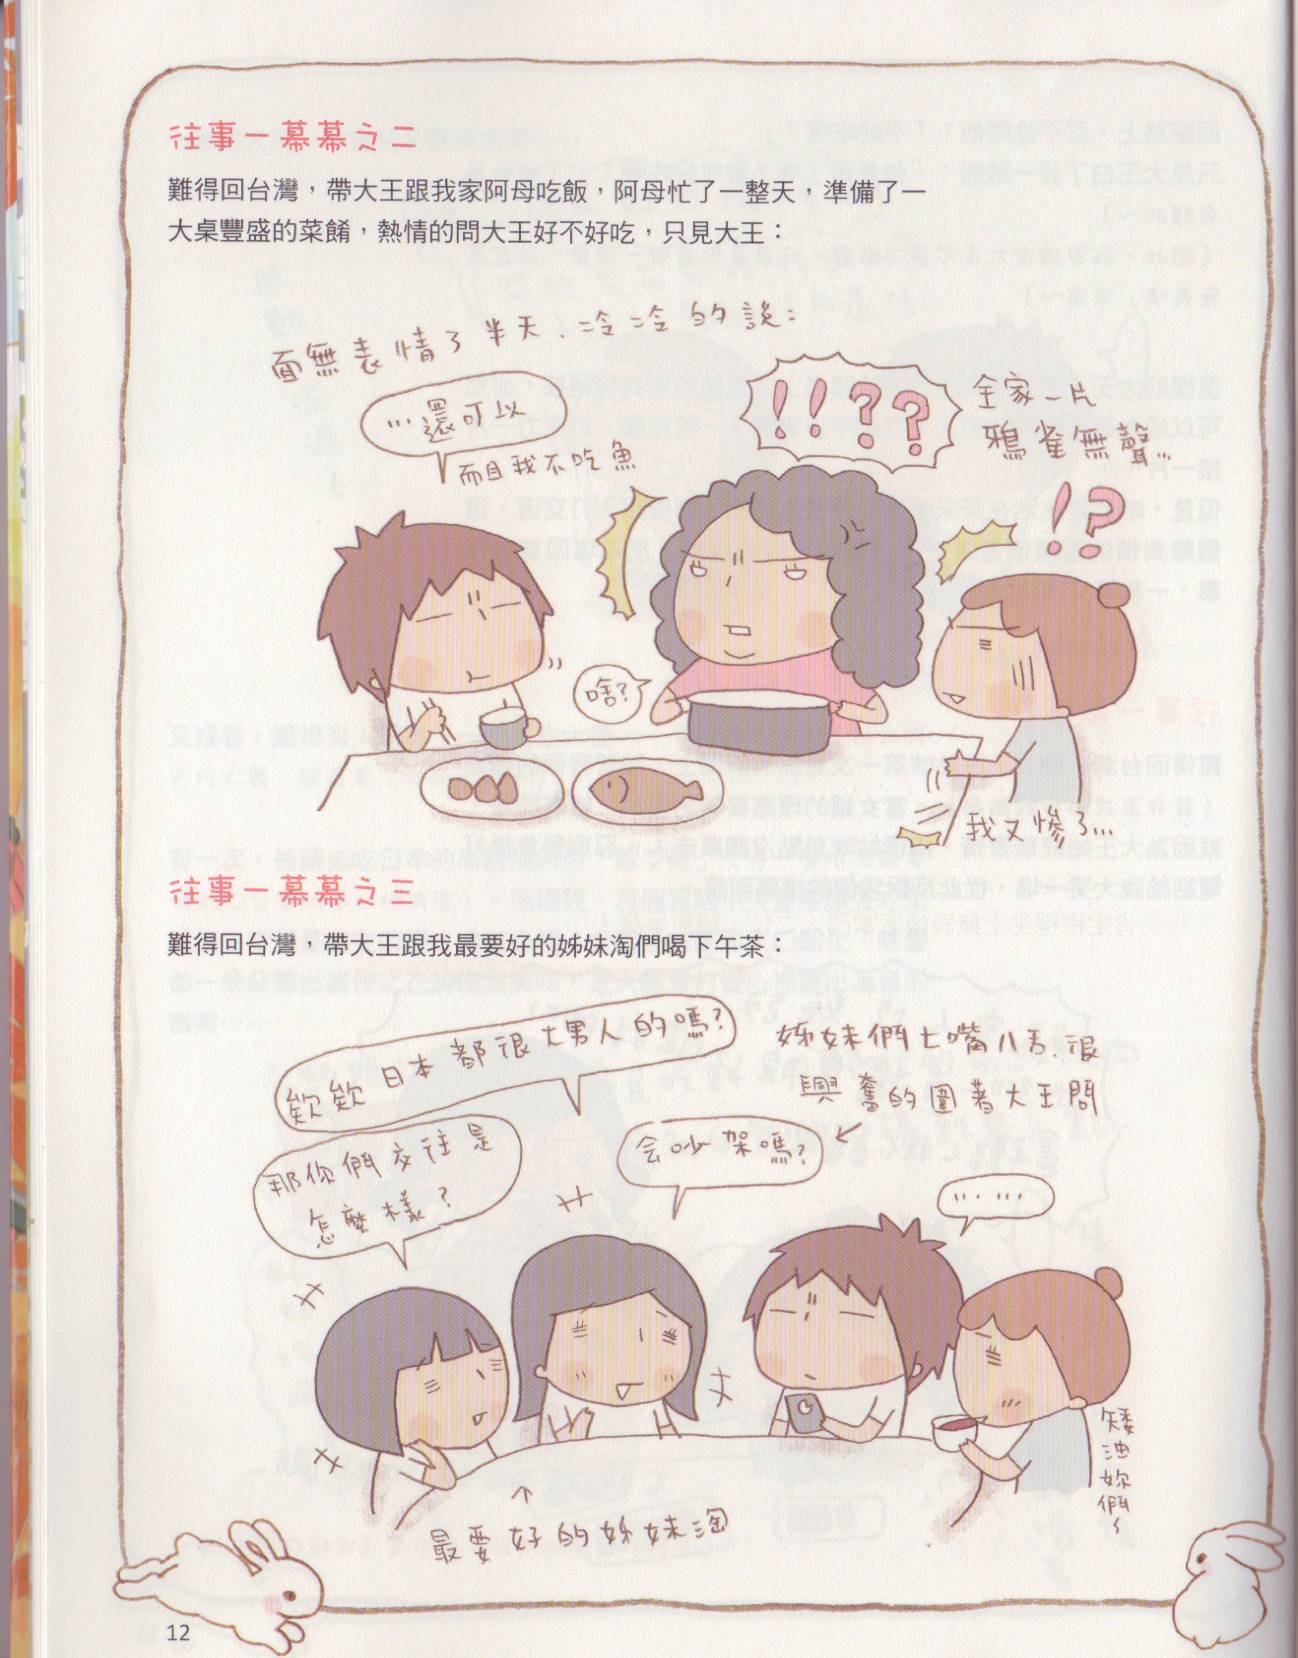 往事一幕幕之二
難得回台灣，帶大王跟我家阿母吃飯，阿母忙了一整天，準備了一
大桌豐盛的菜餚，熱情的問大王好不好吃，只見大王：
面無表情了半天、冷冷的說：
…還可以
而且我不吃魚
!!??
全家一片
鴉雀無聲…
!?
啥?
我又慘了...
往事一幕幕之三
難得回台灣，帶大王跟我最要好的姊妹淘們喝下午茶：
欸欸日本都很大男人的嗎?
姊妹們七嘴八舌、很
興奮的圍著大王問
那你們交往是
怎麼樣?
会吵架嗎?
……
矮油妳們~
最要好的姊妹淘
12